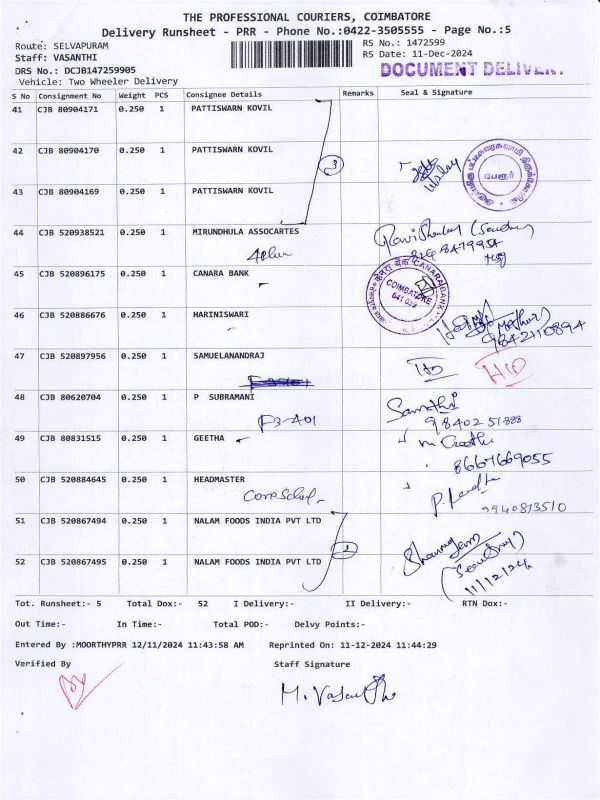 THE PROFESSIONAL COURIERS, COIMBATORE
Delivery Runsheet - PRR - Phone No.:0422-3505555 - Page No.:5
Route: SELVAPURAM
RS No.: 1472599
Staff: VASANTHI
RS Date: 11-Dec-2024
DRS No.: DCJB147259905
DOCUMENT DELIVERY
Vehicle: Two Wheeler Delivery
S No Consignment No Weight PCS Consignee Details Remarks Seal & Signature
41 CJB 80904171 0.250 1 PATTISWARN KOVIL
42 CJB 80904170 0.250 1 PATTISWARN KOVIL
3
பேரூர்
43 CJB 80904169 0.250 1 PATTISWARN KOVIL
44 CJB 520938521 0.250 1 MIRUNDHULA ASSOCARTES
45 CJB 520896175 0.250 1 CANARA BANK
CANARA BANK
COIMBATORE
641 039
46 CJB 520886676 0.250 1 HARINISWARI
9842110894
47 CJB 520897956 0.250 1 SAMUELANANDRAJ
HD
48 CJB 80620704 0.250 1 P SUBRAMANI
F3-401
49 CJB 80831515 0.250 1 GEETHA
8667669055
50 CJB 520884645 0.250 1 HEADMASTER
9940813510
51 CJB 520867494 0.250 1 NALAM FOODS INDIA PVT LTD
52 CJB 520867495 0.250 1 NALAM FOODS INDIA PVT LTD
11/12/24
Tot. Runsheet:- 5 Total Dox:- 52 I Delivery:- II Delivery:- RTN Dox:-
Out Time:- In Time:- Total POD:- Delvy Points:-
Entered By :MOORTHYPRR 12/11/2024 11:43:58 AM Reprinted On: 11-12-2024 11:44:29
Verified By Staff Signature
M. Vasanthi